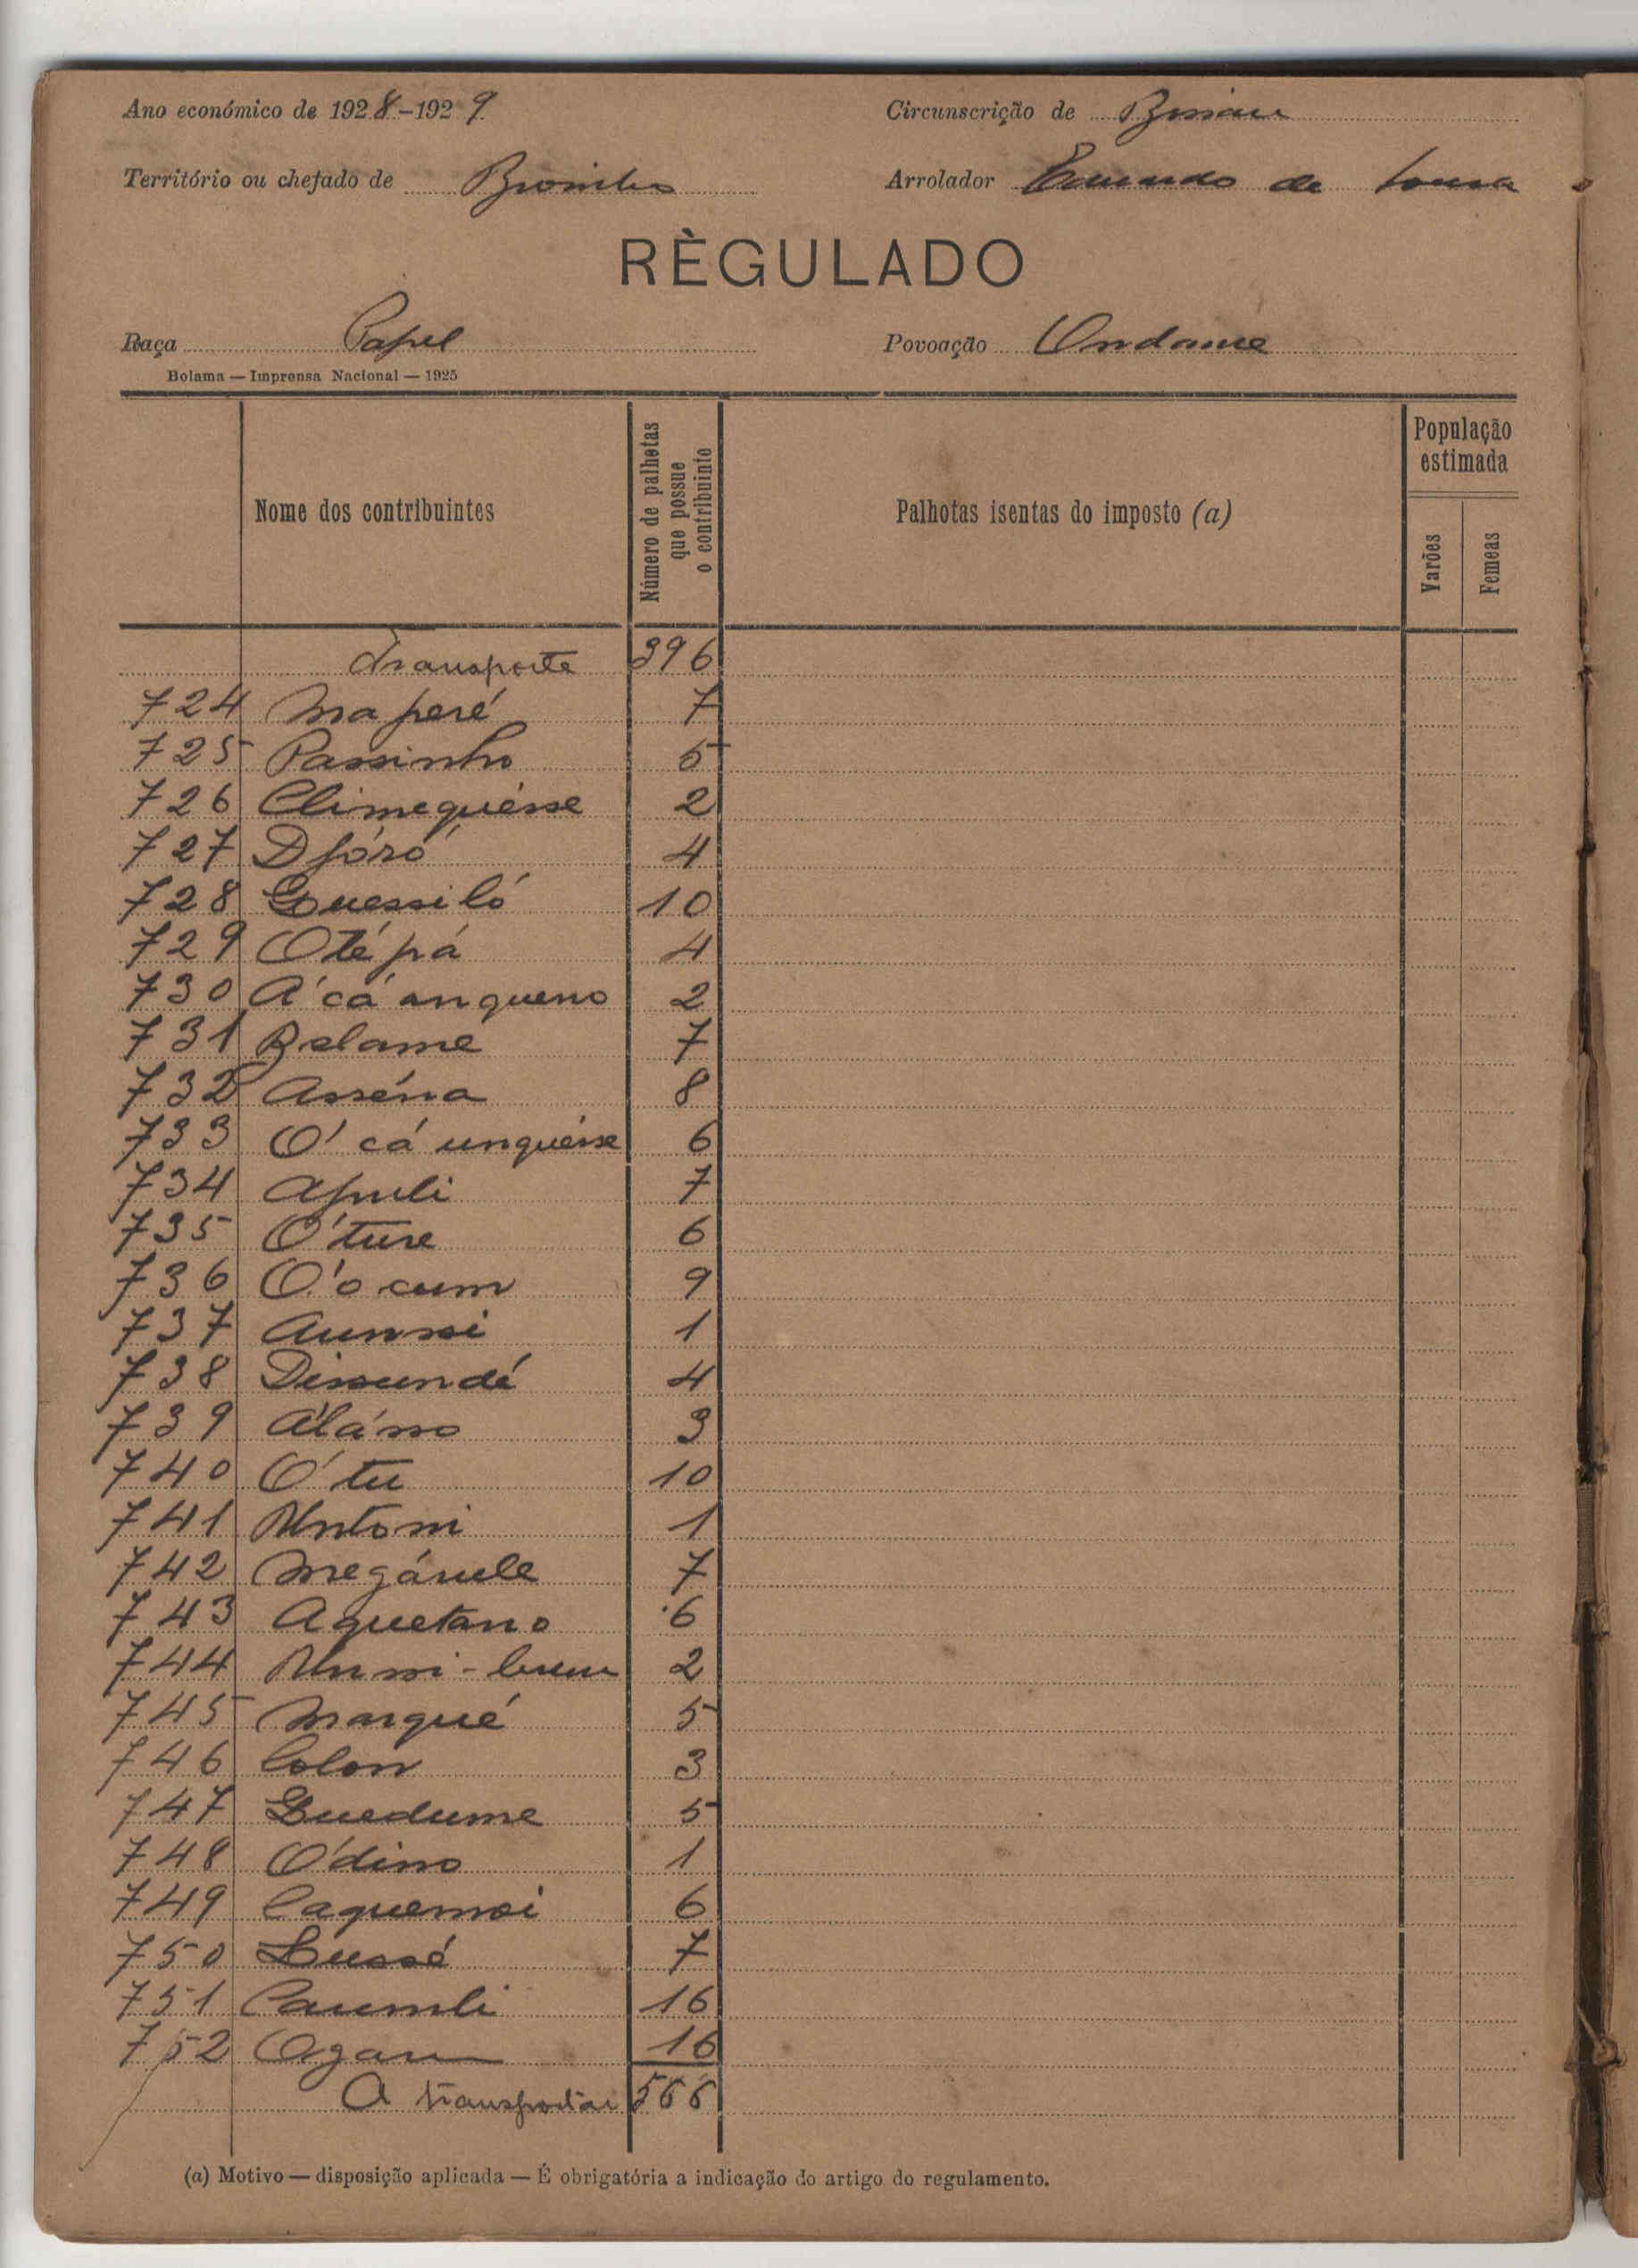 Ano económico de 1928-1929
Circunscrição de Bissau
Território ou chefado de
Arrolador de Sousa
RÈGULADO
Raça Papel
Povoação Ondame
Bolama — Imprensa Nacional — 1925
Nome dos contribuintes
Número de palhotas que possue o contribuinte
Palhotas isentas do imposto (a)
População estimada
Varões
Femeas
Transporte 396
724 Ma peré 7
725 Passinho 5
726 Climequésse 2
727 Djóró 4
728 Guessiló 10
729 Oté pá 4
730 A' cá anqueno 2
731 Belame 7
732 Asséna 8
733 O' cá unquésse 6
734 Apuli 7
735 O' ture 6
736 O' o cum 9
737 4 1
738 Dissundé 4
739 3
740 O' tu 10
741 Untoni 1
742 7
743 Aquetano 6
744 2
745 Marqué 5
746 Colon 3
747 Guedume 5
748 O'dino 1
749 6
750 Lussé 7
751 16
752 16
A transportar 566
(a) Motivo — disposição aplicada — É obrigatória a indicação do artigo do regulamento.